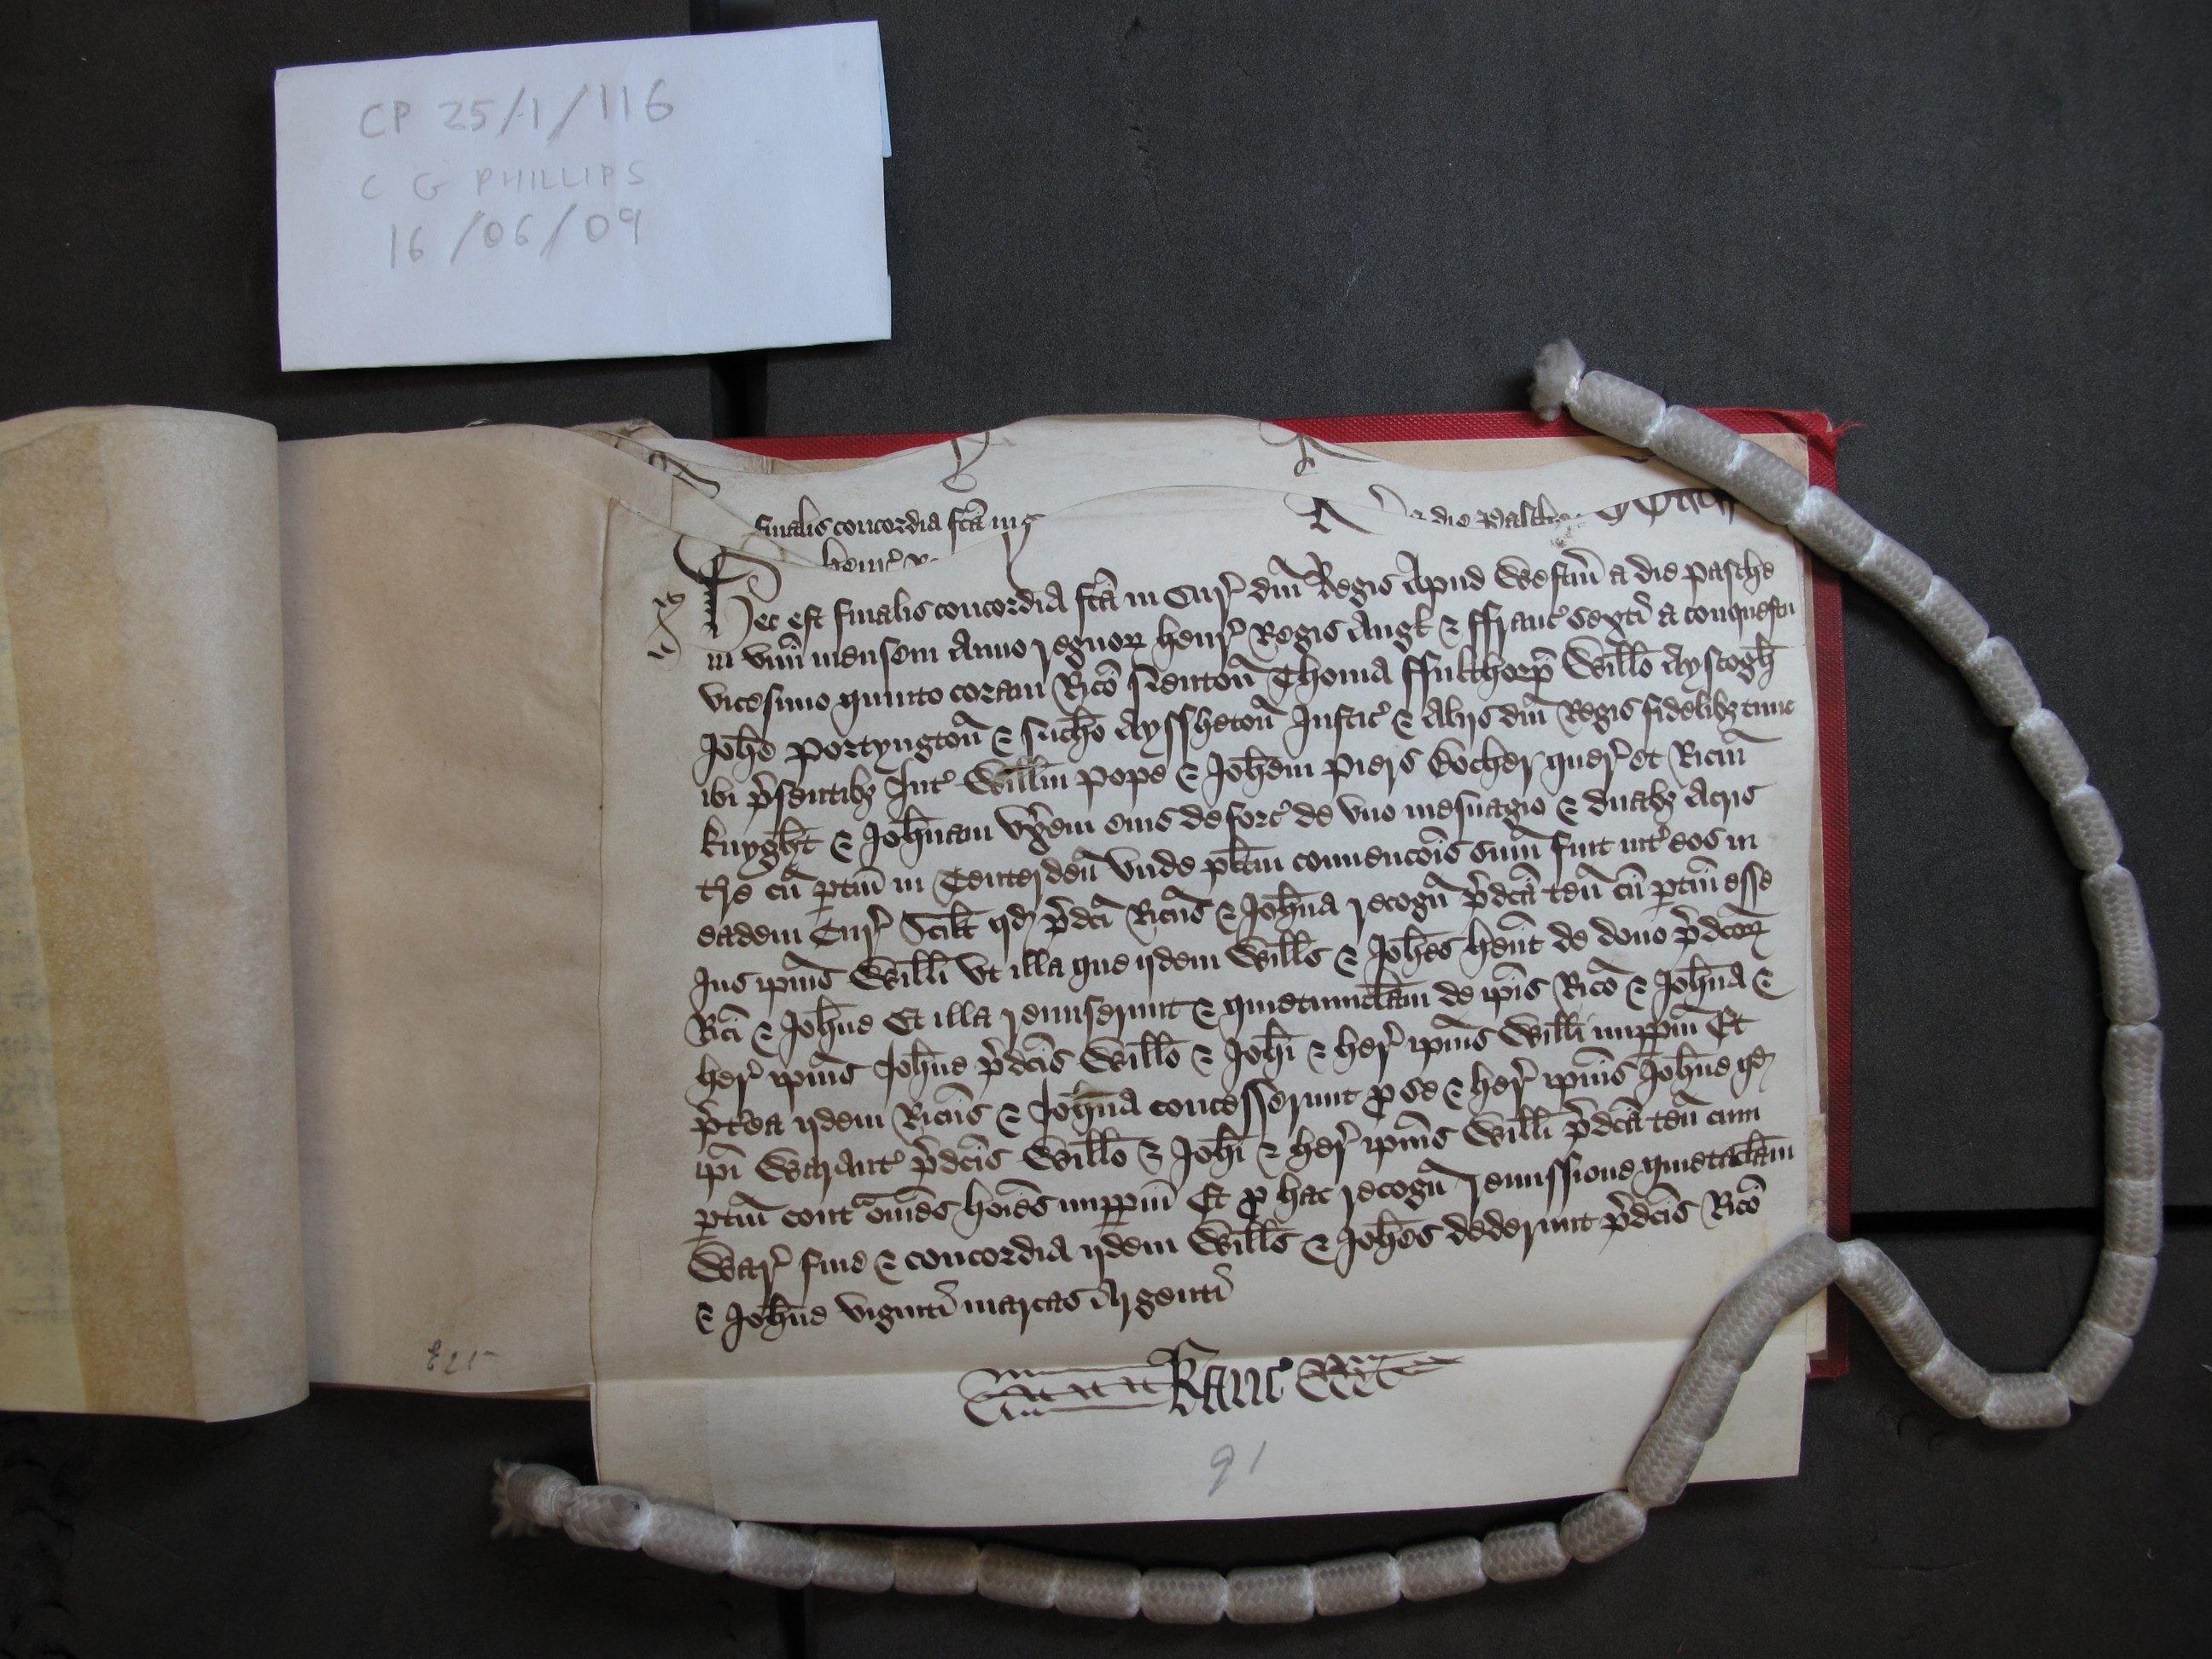 CP 25/1/116
C G PHILLIPS
16/06/09
finalis concordia fcā in
a die Pasche
henr̄
Hec est finalis concordia fcā in Cur̄ dn̄i Regis Apud Westm̄ a die Pasche
in vnū mensem Anno regnoꝝ henr̄ Regis Angł & ffranc̄ sexti a conquestu
vicesimo quinto coram Ricō Neutoñ Thoma ffulthorp̄ Witto Ayscogħ
Joħe Portyngtoñ & Nicħo Aysshetoñ Justic̄ & Alijs dn̄i Regis fidelibȝ tunc
ibi p̄sentibȝ Int̄ Wiłłm Pope & Joħem Piers Bocher quer̄ et Ricm̄
knygħt & Joħnam vx̄em eius deforc̄ de vno mesuagio & duabȝ Acris
tr̄e cū ptiñ in Tenterdeñ vnde ptm̄ conuencōis sum̄ fuit int̄ eos in
eadem Cur̄ Scitt qđ p̄dc̄i Ricūs & Joħna recogñ p̄dcā teñ cū ptiñ esse
Jus ip̄ius Wiłłi vt illa que ijdem Wiłłs & Joħes hent de dono p̄dcoꝝ
Rici & Joħne Et illa remiserunt & quietumclam̄ de ip̄is Ricō & Joħna &
her̄ ip̄ius Joħne p̄dcīs Wiłło & Joħi & her̄ ip̄ius Wiłłi imppm̄ Et
p̄t̄ea ijdem Ricūs & Joħna concesserunt p se & her̄ ip̄ius Joħne qđ
ip̄i Warant̄ p̄dcīs Wiłło & Joħi & her̄ ip̄ius Wiłłi p̄dcā teñ cum
ptiñ contᵃ om̄es hoīes imppm̄ Et p hac recogñ remissione quietaclam̄
War̄ fine & concordia ijdem Wiłłs & Joħes dederunt p̄dcīs Ricō
& Joħne viginti marcas Argenti
Kanc̄
91